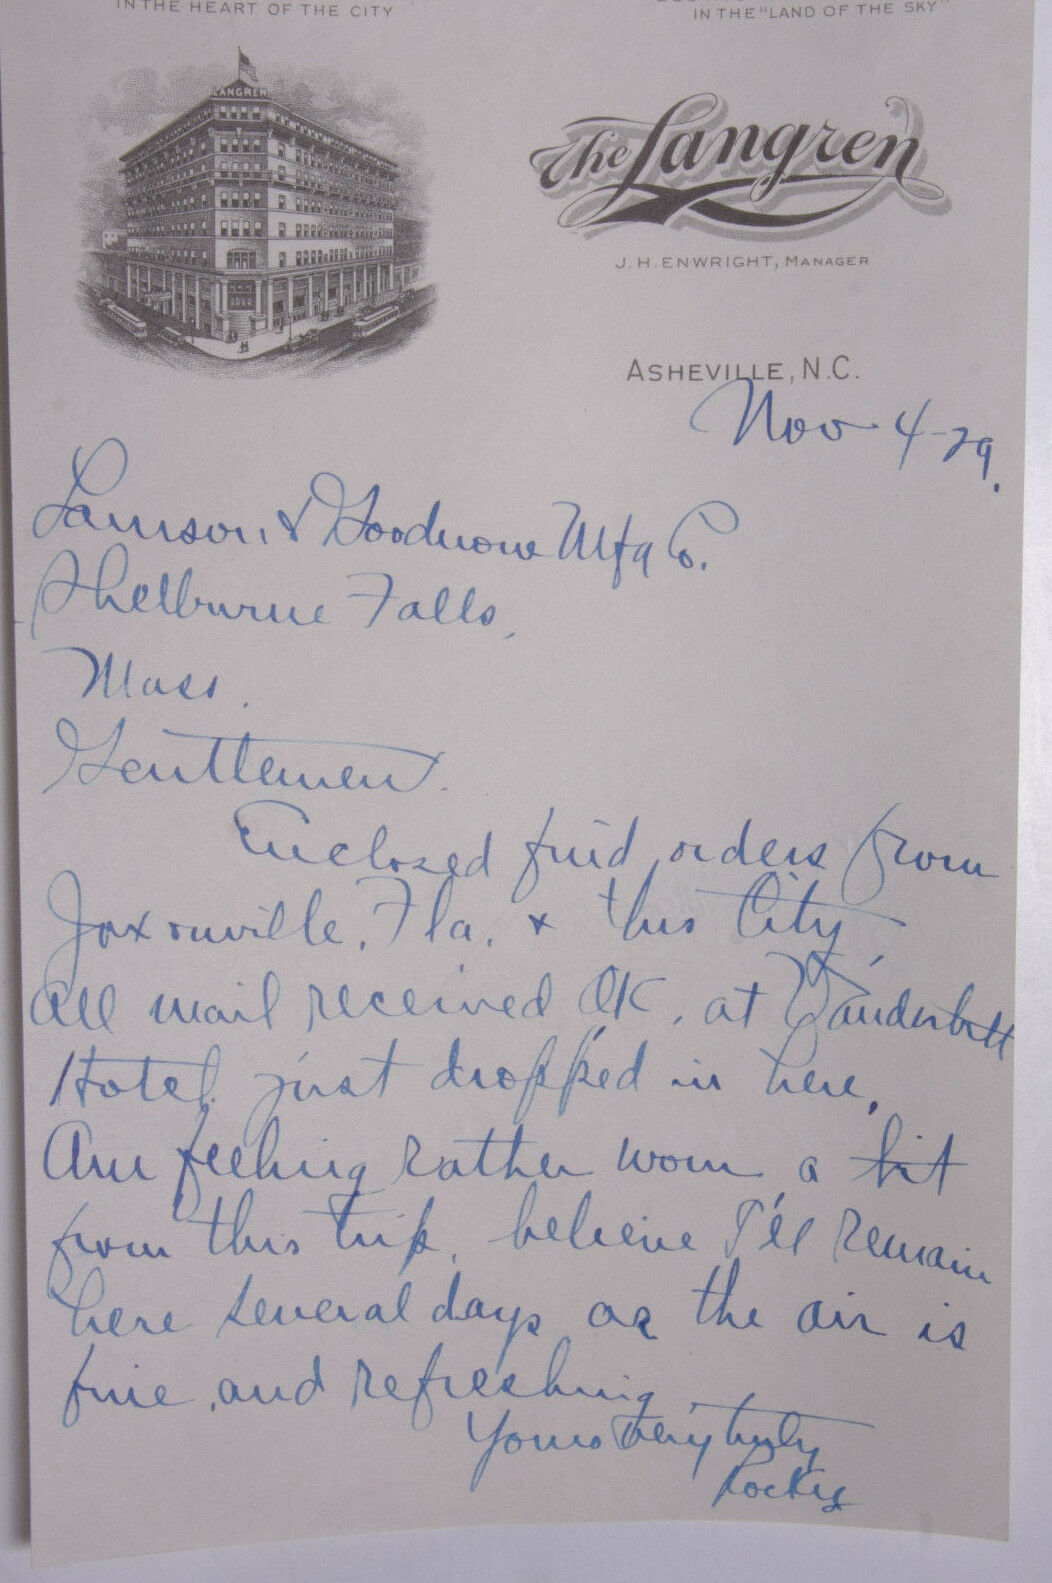 IN THE HEART OF THE CITY
IN THE "LAND OF THE SKY"
LANGREN
The Langren
J. H. ENWRIGHT, MANAGER
ASHEVILLE, N.C.
Nov 4-29.
Lamson & Goodnow Mfg Co.
Shelburne Falls,
Mass.
Gentlemen.
Enclosed find orders from
Jaxonville, Fla. & this City.
All mail received OK, at Vanderbilt
Hotel, just dropped in here.
Am feeling rather worn a bit
from this trip, believe I'll remain
here several days as the air is
fine, and refreshing.
Yours very truly
Rocky